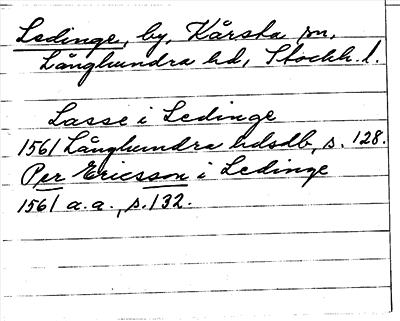 Ledinge, by, Kårsta sn,
Långhundra hd, Stockh. l.
Lasse i Ledinge
1561 Långhundra hdsdb, s. 128.
Per Ericsson i Ledinge
1561 a.a., s. 132.